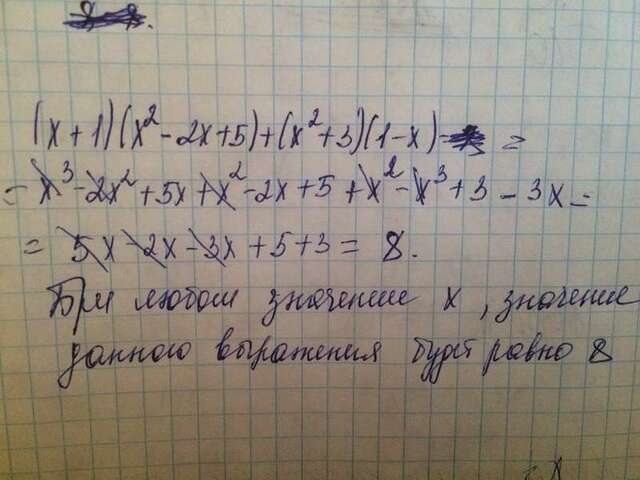 (x+1)(x²-2x+5)+(x²+3)(1-x) =
= x³-2x²+5x+x²-2x+5+x²-x³+3-3x =
= 5x-2x-3x+5+3 = 8.
При любом значение x, значение
данного выражения будет равно 8